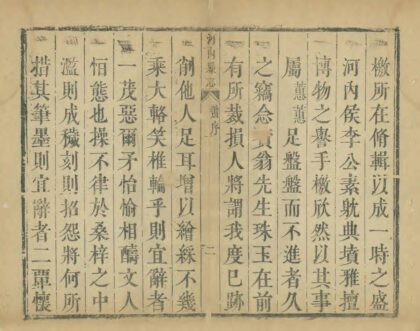 檄所在脩輯以成一時之盛
河內侯李公素躭典墳雅擅
博物之譽手檄欣然以其事
屬蕙蕙足盤盤而不進者久
之竊念賁翁先生珠玉在前
有所裁損人將謂我度已跡
河內縣志
舊序
二
削他人足耳增以繪綵不幾
乘大輅笑椎輪乎則宜辭者
一茂惡爾矛怡愉相醻文人
恒態也操不律於桑梓之中
濫則成穢刻則招怨將何所
措其筆墨則宜辭者二覃懷